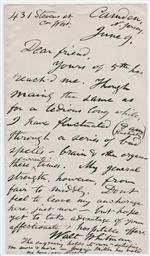 431 Stevens st
cor West.
Camden,
N Jersey,
June 9,
Dear friend,
Yours of 4th has
reach'd me. Though
the same as
for a tedious long while,
I have fluctuated
through a series of bad
spells - brain & the organs
these times. My general
strength, however, from
fair to middling. Don't
feel to leave my anchorage
here just now - but hope
yet to take advantage of your
affectionate & hospitable offer
Walt Whitman